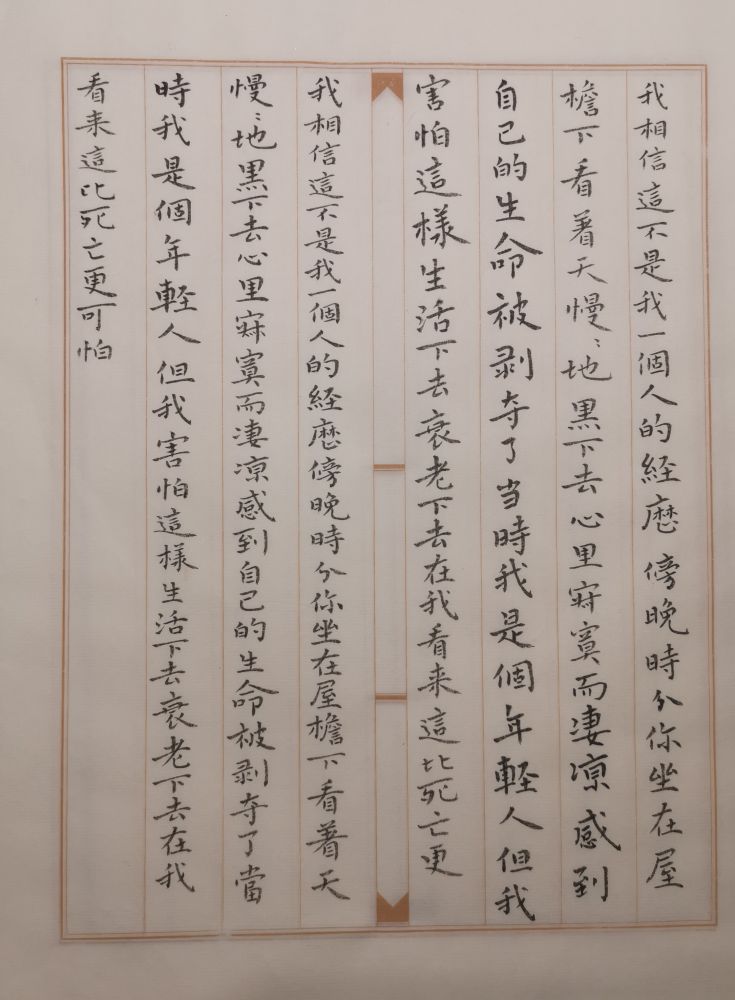 我相信這不是我一個人的経歷傍晚時分你坐在屋
檐下看着天慢〻地黒下去心里寂寞而凄凉感到
自己的生命被剥夺了当時我是個年軽人但我
害怕這樣生活下去衰老下去在我看来這比死亡更
我相信這不是我一個人的経歷傍晚時分你坐在屋檐下看着天
慢〻地黒下去心里寂寞而凄凉感到自己的生命被剥夺了當
時我是個年軽人但我害怕這樣生活下去衰老下去在我
看来這比死亡更可怕